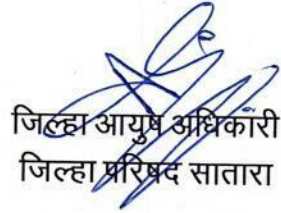 जिल्हा आयुष अधिकारी
जिल्हा परिषद सातारा